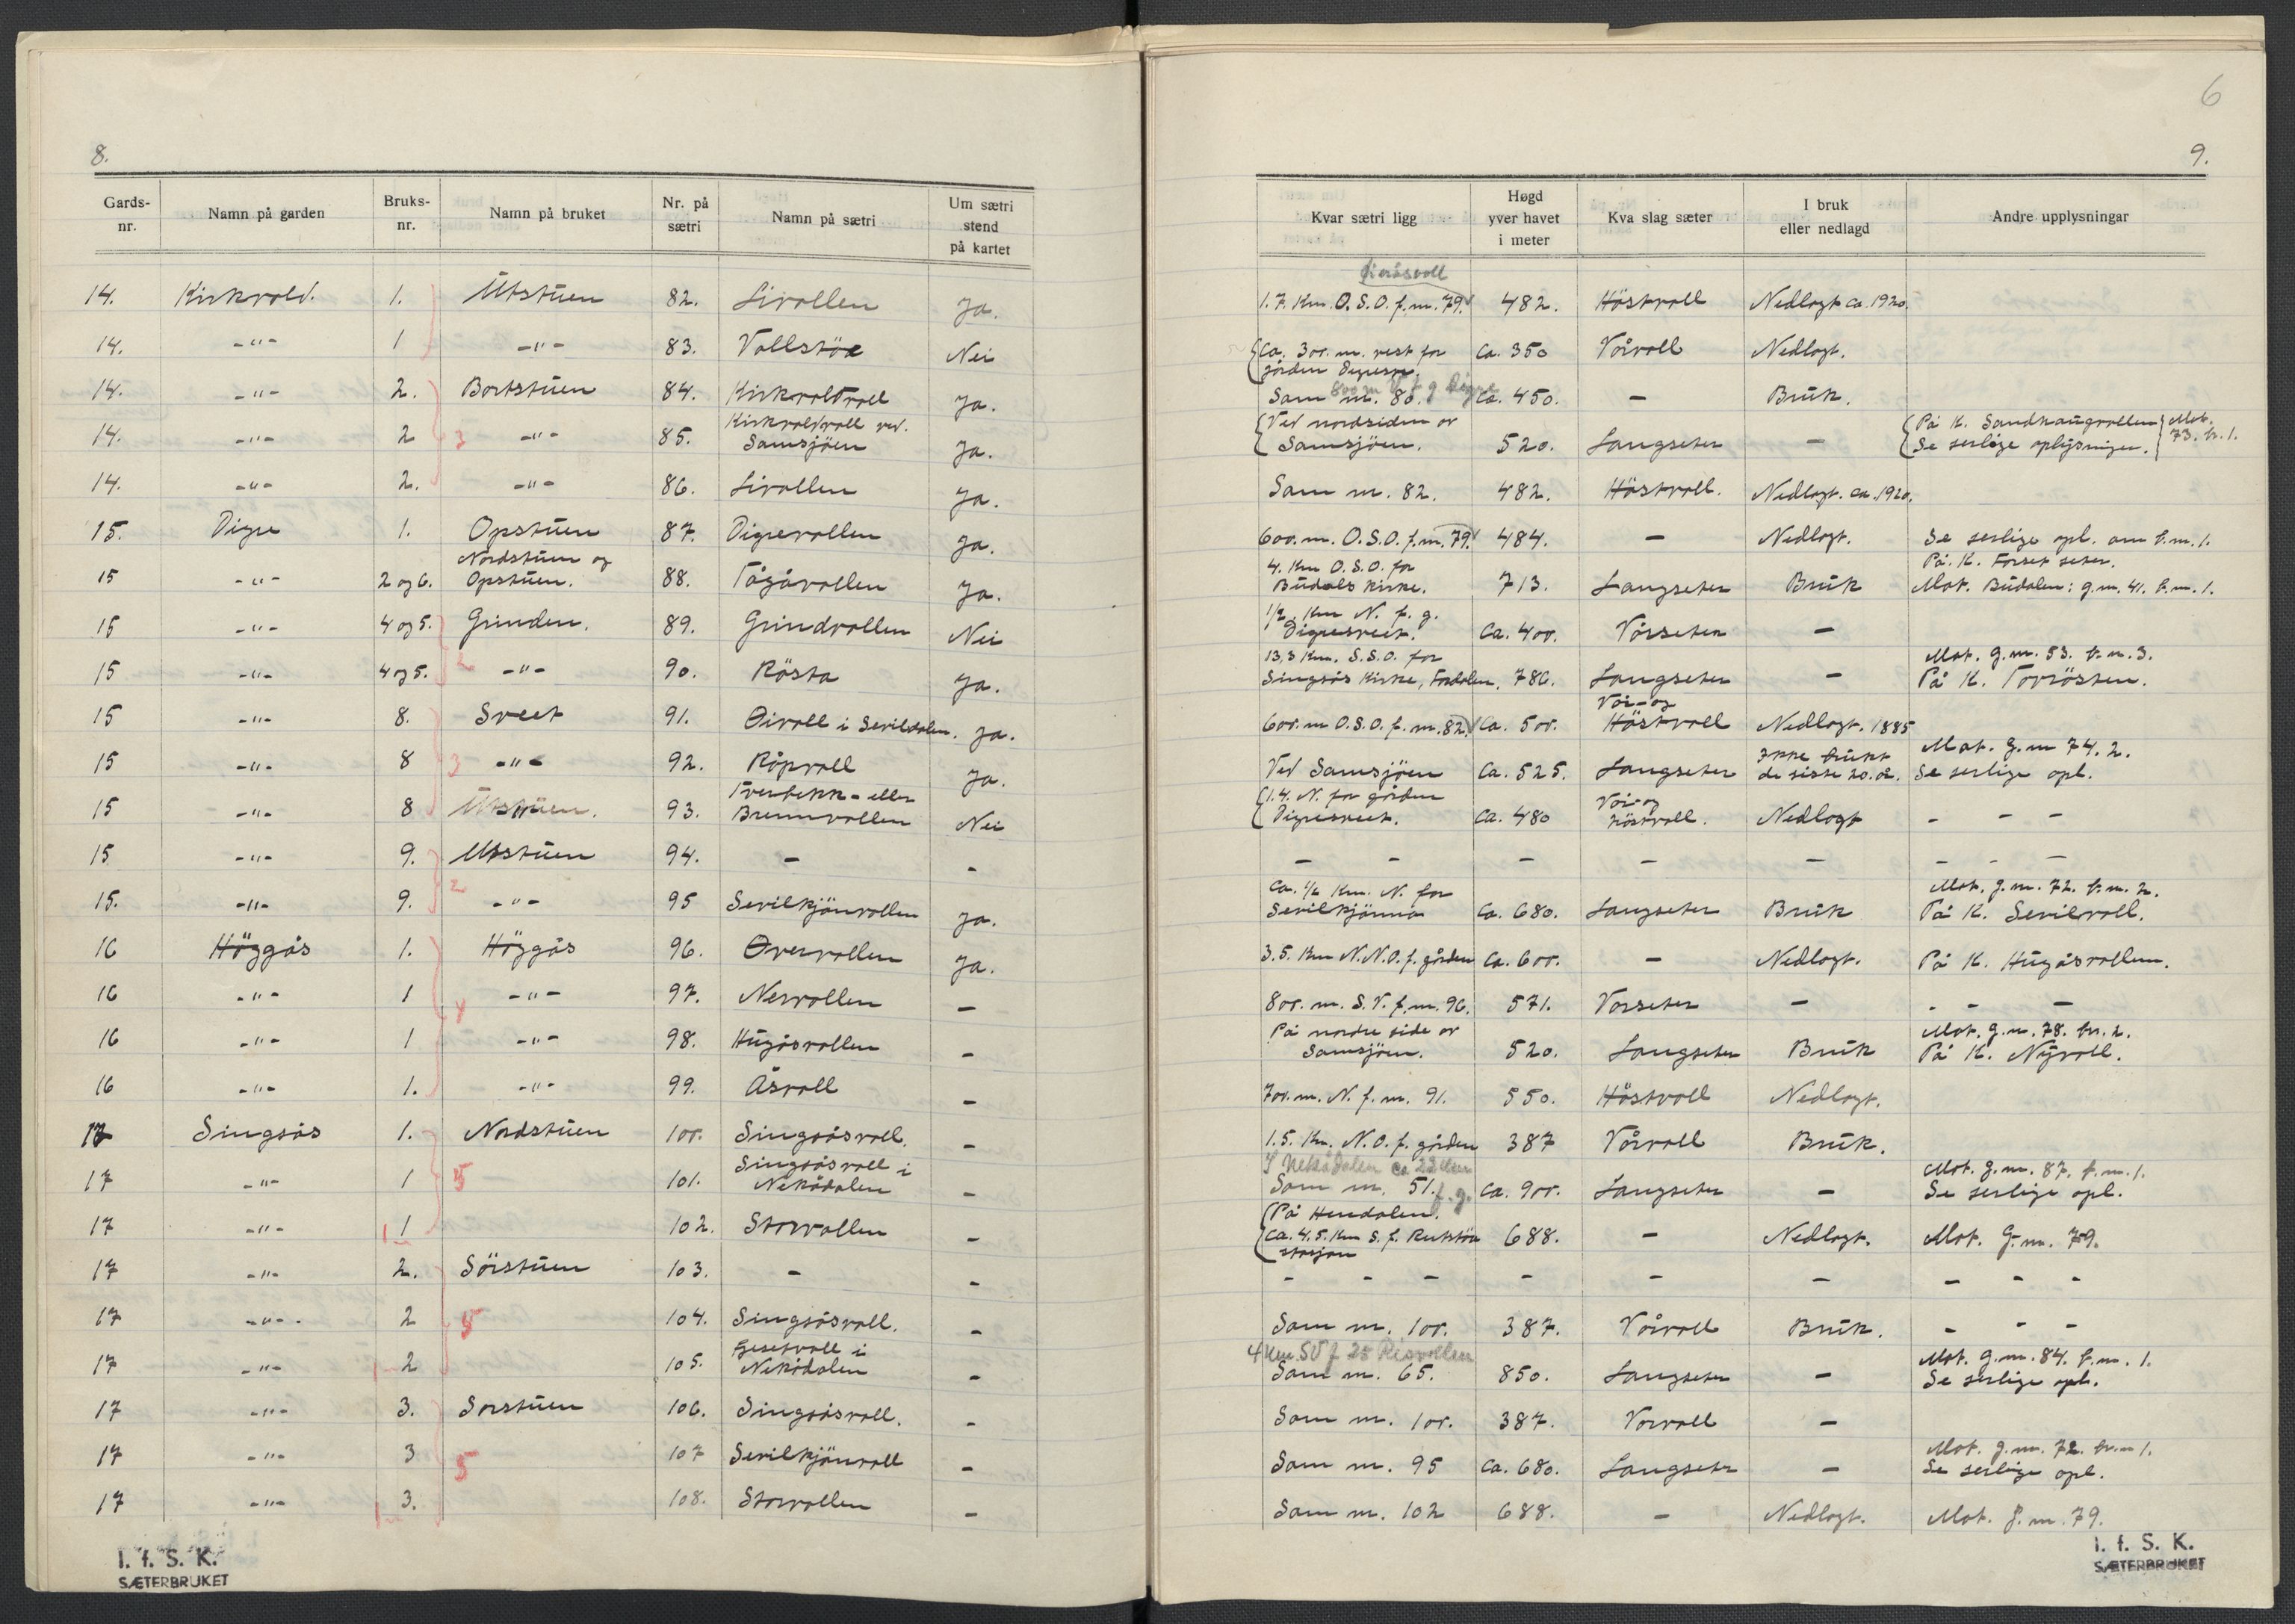 8.
Gards-nr. Namn på garden Bruks-nr. Namn på bruket Nr. på sætri Namn på sætri Um sætri stend på kartet
14. Kirkvold. 1. Utstuen 82. Livollen Ja.
14. -"- 1 -"- 83. Vollstöa Nei
14. -"- 2. Bortstuen 84. Kirkvoldvoll Ja.
14. -"- 2 3 -"- 85. Kirkvoldvoll ved. Samsjöen Ja.
14. -"- 2. -"- 86. Livollen Ja.
15. Digre 1. Opstuen 87. Digrevollen Ja.
15 -"- 2 og 6. Nordstuen og Opstuen. 88. Tågåvollen Ja.
15 -"- 4 og 5. Grinden. 89. Grindvollen Nei
15 -"- 4 og 5. 2 -"- 90. Rösta Ja.
15 -"- 8. Sveet 91. Øivoll i Sevildalen. Ja.
15 -"- 8 3 -"- 92. Råpvoll Ja.
15 -"- 8 Utstuen. 93. Tverbekk- eller Brennvollen Nei
15 -"- 9. Utstuen 94. - -
15. -"- 9. 2 -"- 95 Sevilkjönvollen Ja.
16 Höggås 1. Höggås 96. Øvervollen Ja.
16 -"- 1 -"- 97. Nervollen -
16 -"- 1 4 -"- 98. Hugåsvollen -
16 -"- 1. -"- 99. Åsvoll -
17 Singsås 1. Nordstuen 100. Singsåsvoll. -
17 -"- 1 5 101. Singsåsvoll i Nekådalen -
17 -"- 1 102. Storvollen -
17 -"- 2. Sörstuen 103. - -
17 -"- 2 5 104. Singsåsvoll. -
17 -"- 2 105. Forsetvoll i Nekådalen -
17 -"- 3. Sorstuen 106. Singsåsvoll. -
17 -"- 3 5 107 Sevilkjönvoll -
17 -"- 3. 108. Storvollen -
I. f. S. K.
SÆTERBRUKET
6
9.
Kvar sætri ligg Høgd yver havet i meter Kva slag sæter I bruk eller nedlagd Andre upplysningar
1.7. Km. O.S.O. f. nr. 79. 482. Höstvoll Nedlagt ca. 1920.
Ca. 300. m. vest for gården Digresve. Ca. 350 Vårvoll Nedlagt.
Som nr. 80. 800 m V f g Digre Ca. 450. - Bruk.
Ved nordsiden av Samsjöen. 520. Langseter - På K. Sandhaugvollen Mat. 73. b. 1. Se serlige oplysninger.
Som nr. 82. 482. Höstvoll. Nedlagt. ca. 1920.
600. m. O.S.O. f. nr. 79. 484. - Nedlagt. Se serlige opl. om b.nr. 1.
4. Km O.S.O. for Budals kirke. 713. Langseter Bruk På K. Forset seter. Mat. Budalen: g.nr. 41. b.nr. 1.
1/2 Km N. f. g. Digresveet. Ca. 400. Vårseter -
13,3 Km. S.S.O. for Singsås Kirke, Fordalen. 786. Langseter - Mat. g.nr. 53. b.nr. 3. På K. Torrösten.
600. m O.S.O. f. nr. 82. Ca. 500. Vår- og Höstvoll Nedlagt. 1885
Ved Samsjöen Ca. 525. Langseter Ikke brukt de siste 20. år. Mat. g.nr 74. 2. Se serlige opl.
1.4. N. for gården Digresveet. Ca. 480 Vår- og höstvoll. Nedlagt - - -
- - - - - - - -
Ca. 1/2 Km. N. for Sevilkjönna Ca. 680. Langseter Bruk Mat. g.nr. 72. b.nr. 2. På K. Sevilvoll.
3.5. Km N.N.O. f. gården Ca. 600. - Nedlagt. På K. Hugåsvollen.
800. m. S.V. f. nr. 96. 571. Vorseter - - - -
På nordre side av Samsjöen. 520. Langseter Bruk Mat. g.nr. 78. br. 2. På K. Nyvoll.
700. m. N. f. nr. 91. 550. Höstvoll Nedlagt.
1.5. Km. N.O. f. gården 387 Vårvoll Bruk.
I Nekådalen ca 22 km f. g. Som nr. 51. Ca. 900. Langseter - Mat. g.nr. 87. b.nr. 1. Se serlige opl.
På Hendalen. Ca. 4.5. Km S. f. Reitstöa stasjon 688. - Nedlagt. Mat. G.nr. 79.
- - - - - - - - -
Som nr. 100. 387. Vårvoll Bruk. - - -
4 Km. SV f 25 Risvollen Som nr. 65. 850. Langseter - Mat. g.nr. 84. b.nr. 1. Se serlige opl.
Som nr. 100. 387. Vorvoll -
Som nr. 95 Ca. 680. Langseter - Mat. g.nr. 72. br.nr 1. Se serlige opl.
Som nr. 102 688. - Nedlagt. Mat. g.nr. 79.
I. f. S. K.
SÆTERBRUKET